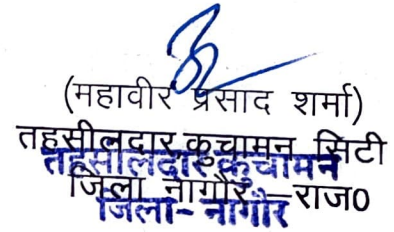 (महावीर प्रसाद शर्मा)
तहसीलदार कुचामन सिटी
तहसीलदार कुचामन
जिला नागौर –राज0
जिला- नागौर